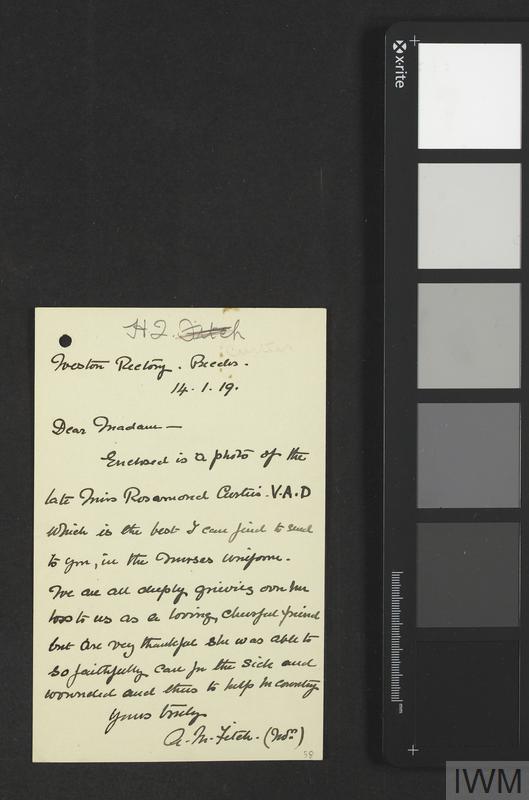 H2. Fitch
Curtis
Weston Rectory. Beccles.
14. 1. 19.
Dear Madam —
Enclosed is a photo of the
late Miss Rosamond Curtis. V.A.D
which is the best I can find to send
to you, in the Nurses Uniform.
We are all deeply grieving over her
loss to us as a loving, cheerful friend
but are very thankful she was able to
so faithfully care for the sick and
wounded and thus to help her country
Yours truly
A. M. Fitch. (Mrs)
58
x-rite
mm
IWM